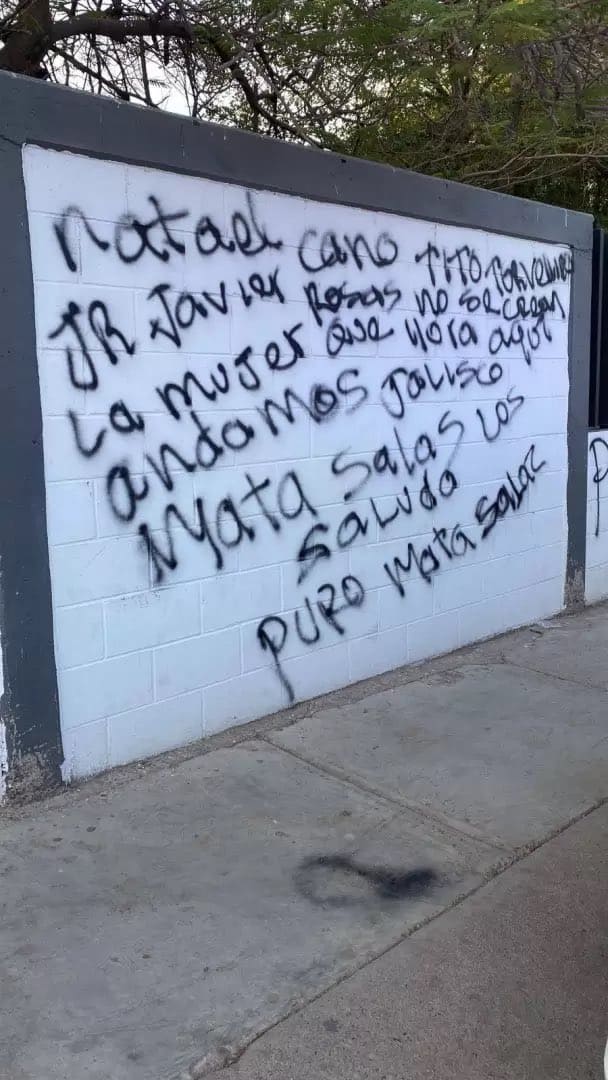 natael cano TITO TORVELLINO
JR Javier ROSAS NO SE CREAN
La mujer QUE llora aqui
andamos Jalisco
Mata Salas LOS
SaLUDO
PURO Mata Salaz
P